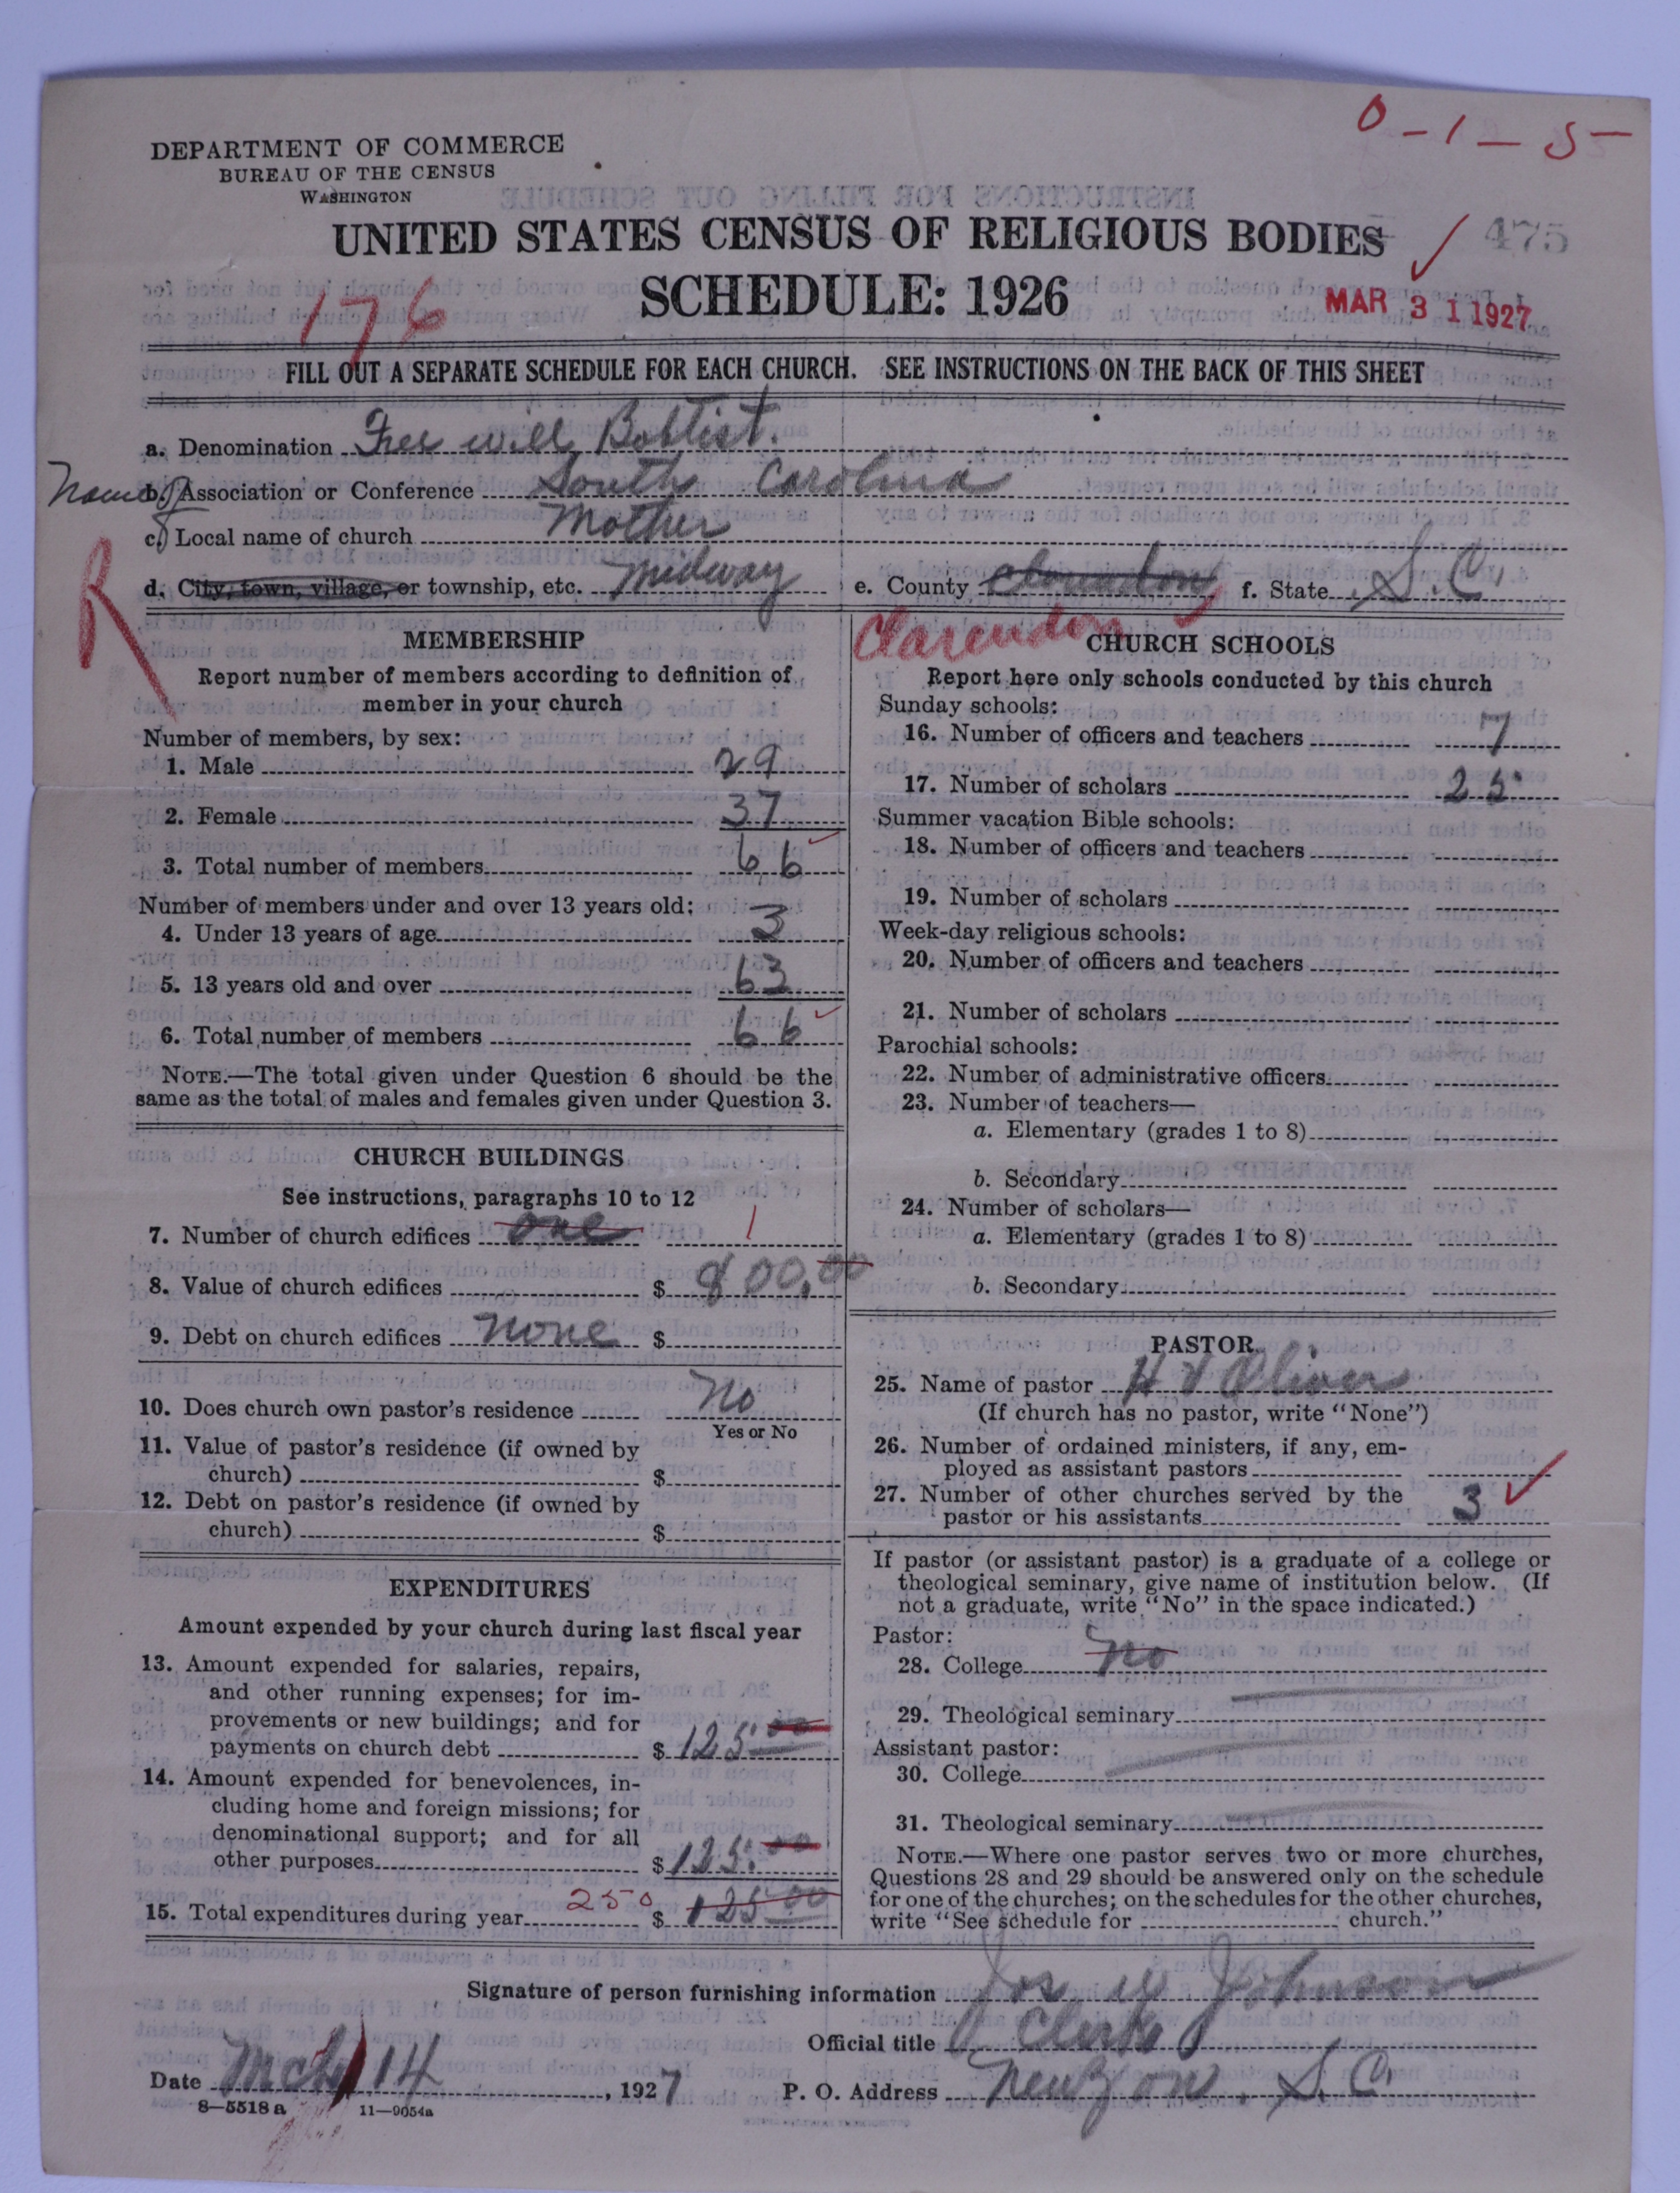 0-1-5
DEPARTMENT OF COMMERCE
BUREAU OF THE CENSUS
WASHINGTON
UNITED STATES CENSUS OF RELIGIOUS BODIES
475
SCHEDULE: 1926
176
MAR 31 1927
FILL OUT A SEPARATE SCHEDULE FOR EACH CHURCH. SEE INSTRUCTIONS ON THE BACK OF THIS SHEET
a. Denomination Free will Babtist.
Name of b. Association or Conference South Carolina
c. Local name of church Mother
R
d. City, town, village, or township, etc. Midway e. County f. State S. C.
Clarendon
MEMBERSHIP
Report number of members according to definition of
member in your church
Number of members, by sex:
1. Male 29
2. Female 37
3. Total number of members 66
Number of members under and over 13 years old:
4. Under 13 years of age 3
5. 13 years old and over 63
6. Total number of members 66
NOTE.—The total given under Question 6 should be the
same as the total of males and females given under Question 3.
CHURCH BUILDINGS
See instructions, paragraphs 10 to 12
7. Number of church edifices one 1
8. Value of church edifices $ 800.00
9. Debt on church edifices none $
10. Does church own pastor's residence No
Yes or No
11. Value of pastor's residence (if owned by
church) $
12. Debt on pastor's residence (if owned by
church) $
EXPENDITURES
Amount expended by your church during last fiscal year
13. Amount expended for salaries, repairs,
and other running expenses; for im-
provements or new buildings; and for
payments on church debt $ 125.00
14. Amount expended for benevolences, in-
cluding home and foreign missions; for
denominational support; and for all
other purposes $ 125.00
15. Total expenditures during year 250 $ 125.00
CHURCH SCHOOLS
Report here only schools conducted by this church
Sunday schools:
16. Number of officers and teachers 7
17. Number of scholars 25
Summer vacation Bible schools:
18. Number of officers and teachers
19. Number of scholars
Week-day religious schools:
20. Number of officers and teachers
21. Number of scholars
Parochial schools:
22. Number of administrative officers
23. Number of teachers—
a. Elementary (grades 1 to 8)
b. Secondary
24. Number of scholars—
a. Elementary (grades 1 to 8)
b. Secondary
PASTOR
25. Name of pastor H Oliver
(If church has no pastor, write "None")
26. Number of ordained ministers, if any, em-
ployed as assistant pastors
27. Number of other churches served by the
pastor or his assistants 3
If pastor (or assistant pastor) is a graduate of a college or
theological seminary, give name of institution below. (If
not a graduate, write "No" in the space indicated.)
Pastor:
28. College No
29. Theological seminary
Assistant pastor:
30. College
31. Theological seminary
NOTE.—Where one pastor serves two or more churches,
Questions 28 and 29 should be answered only on the schedule
for one of the churches; on the schedules for the other churches,
write "See schedule for church."
Signature of person furnishing information Jos W Johnson
Official title Clerk
Date Mch 14, 1927 P. O. Address S. C.
8—5518a 11—9054a